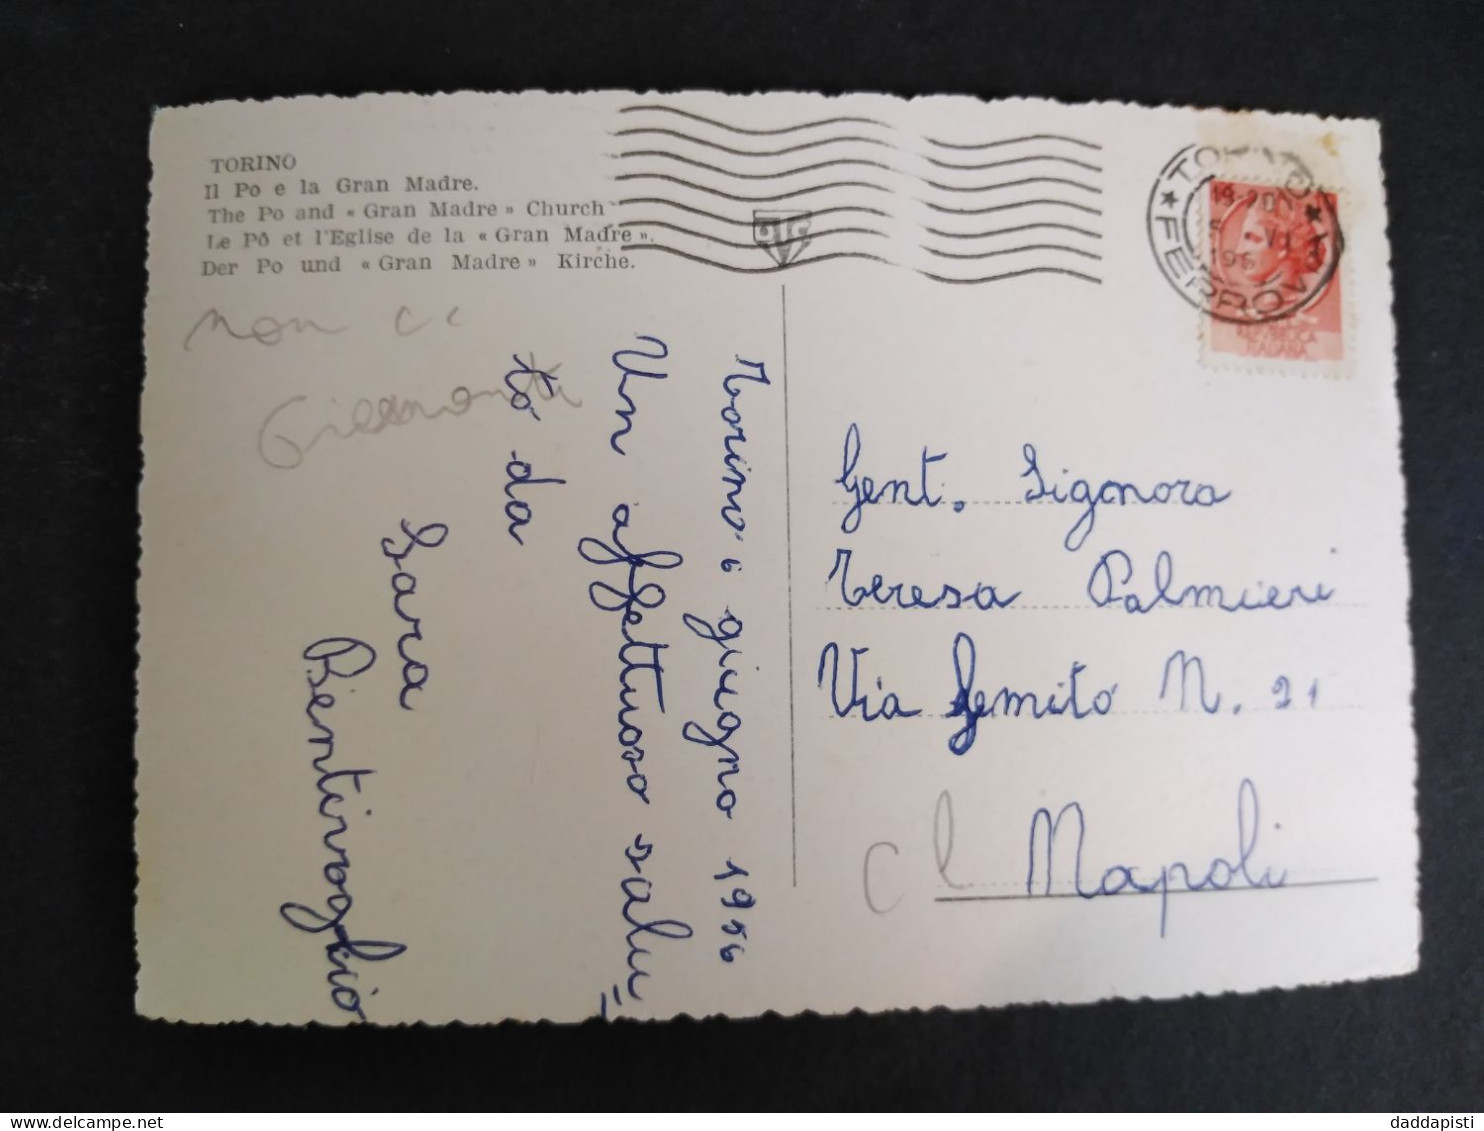 TORINO
Il Po e la Gran Madre.
The Po and « Gran Madre » Church
Le Pô et l'Eglise de la « Gran Madre ».
Der Po und « Gran Madre » Kirche.
non
Torino 6 giugno 1956
Un affettuoso salu
to da
Sara
Bentivoglio
TORINO
FERROVIA
19-20
REPUBBLICA
ITALIANA
Gent. Signora
Teresa Palmieri
Via Gemito N. 21
Napoli
daddapisti